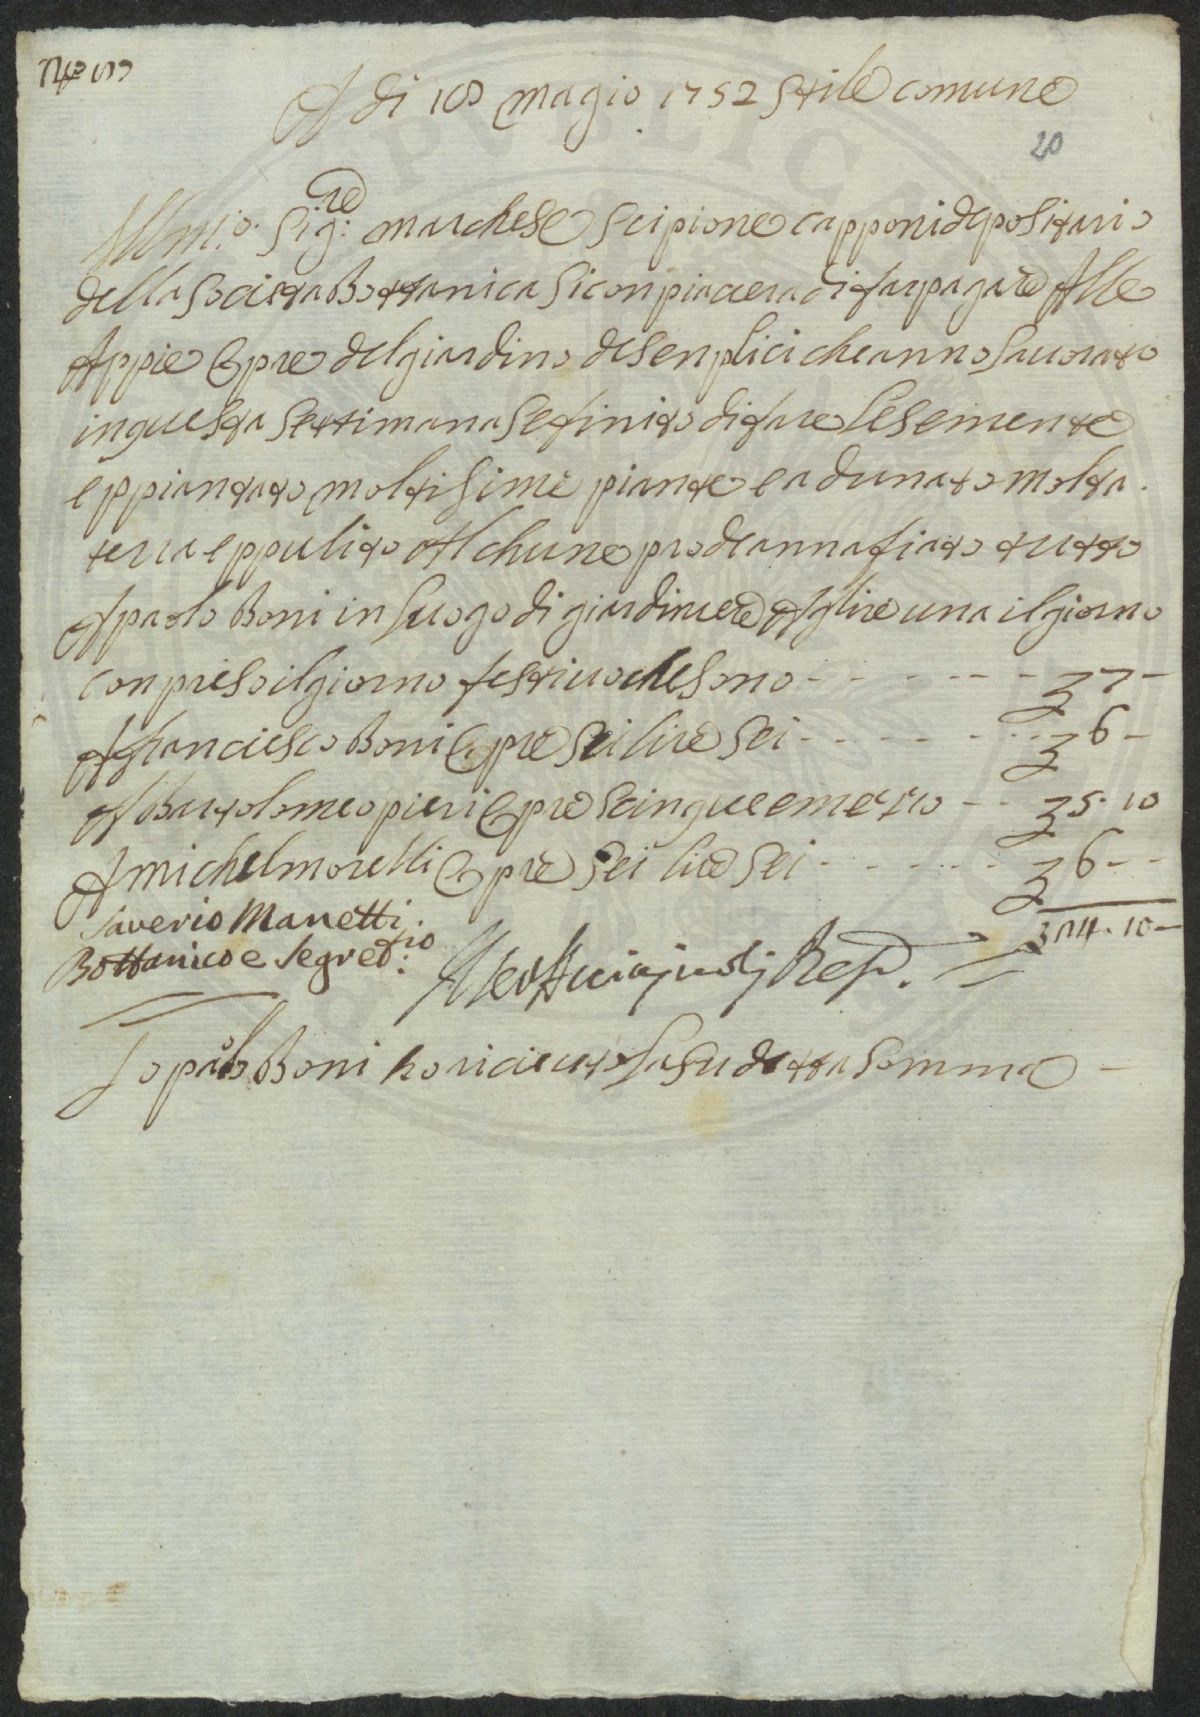 A di 18 magio 1752 stile comune
20
Illmi:o Sig:re marchese Scipione capponi depositario
della Societa Bottanica si conpiacera di far pagare Alle
Appie Opre del giardino de senplici che anno lavorato
in questa settimana se finito di fare le semente
e ppiantato moltisime piante e adunato molta
terra e ppulito Alchune prode annafiato tutto
A paolo Boni in luogo di giardiniere A lire una il giorno
conpreso il giorno festivo che sono - - - - - - - 7 -
A francesco Boni Opre sei lire sei - - - - - - 6 -
A Bartolomeo pieri Opre Scinque e mezzo - - 5. 10
A michel morelli Opre sei lire sei - - - - - - 6 - -
24. 10 -
Saverio Manetti
Bottanico e Segret:rio
Io paolo Boni ho ricieuto la su detta somma -